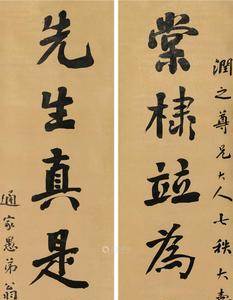 潤之尊兄大人七秩大壽
棠棣竝為
先生真是
通家愚弟翁